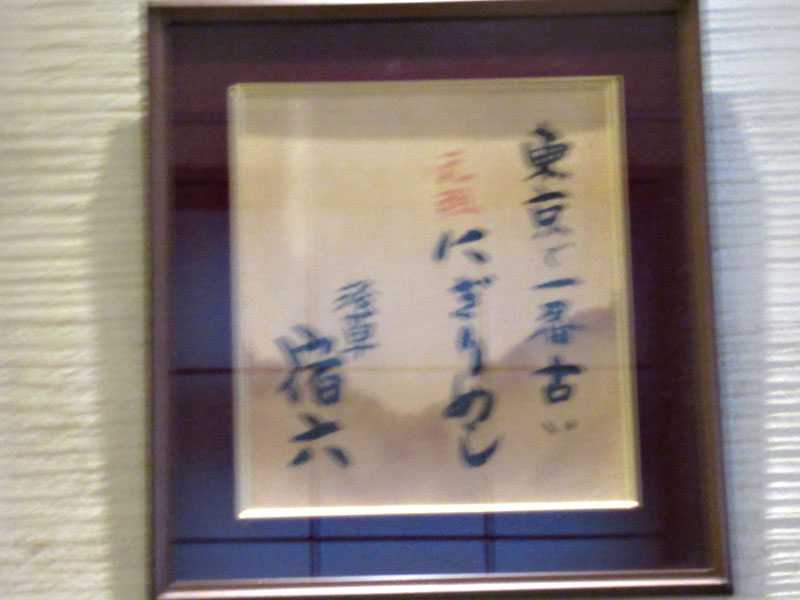 東京で一番古い
元祖にぎりめし
浅草
宿六